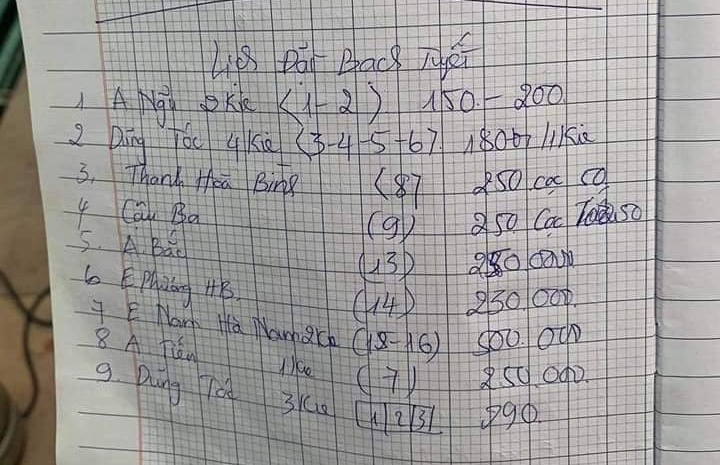 Lịch Đặt Bạch Tuyết
1 A Ngũ 2Kie (1-2) 150.-200.
2 Dũng Tóc 4Kie (3-4-5-6). 180 1Kie
3, Thanh Hoà Bình (8) 250 cọc 50
4 Cậu Ba (9) 250 Cọc 50
5. A. Bắc (13) 250.000
6 E Phương HB. (14) 250.000.
7 E Nam Hà Nam 2Kie (15-16) 500.000
8 A Tiến 1Kie (7) 250.000.
9. Dũng Tóc 3Kie 1 2 3 290.